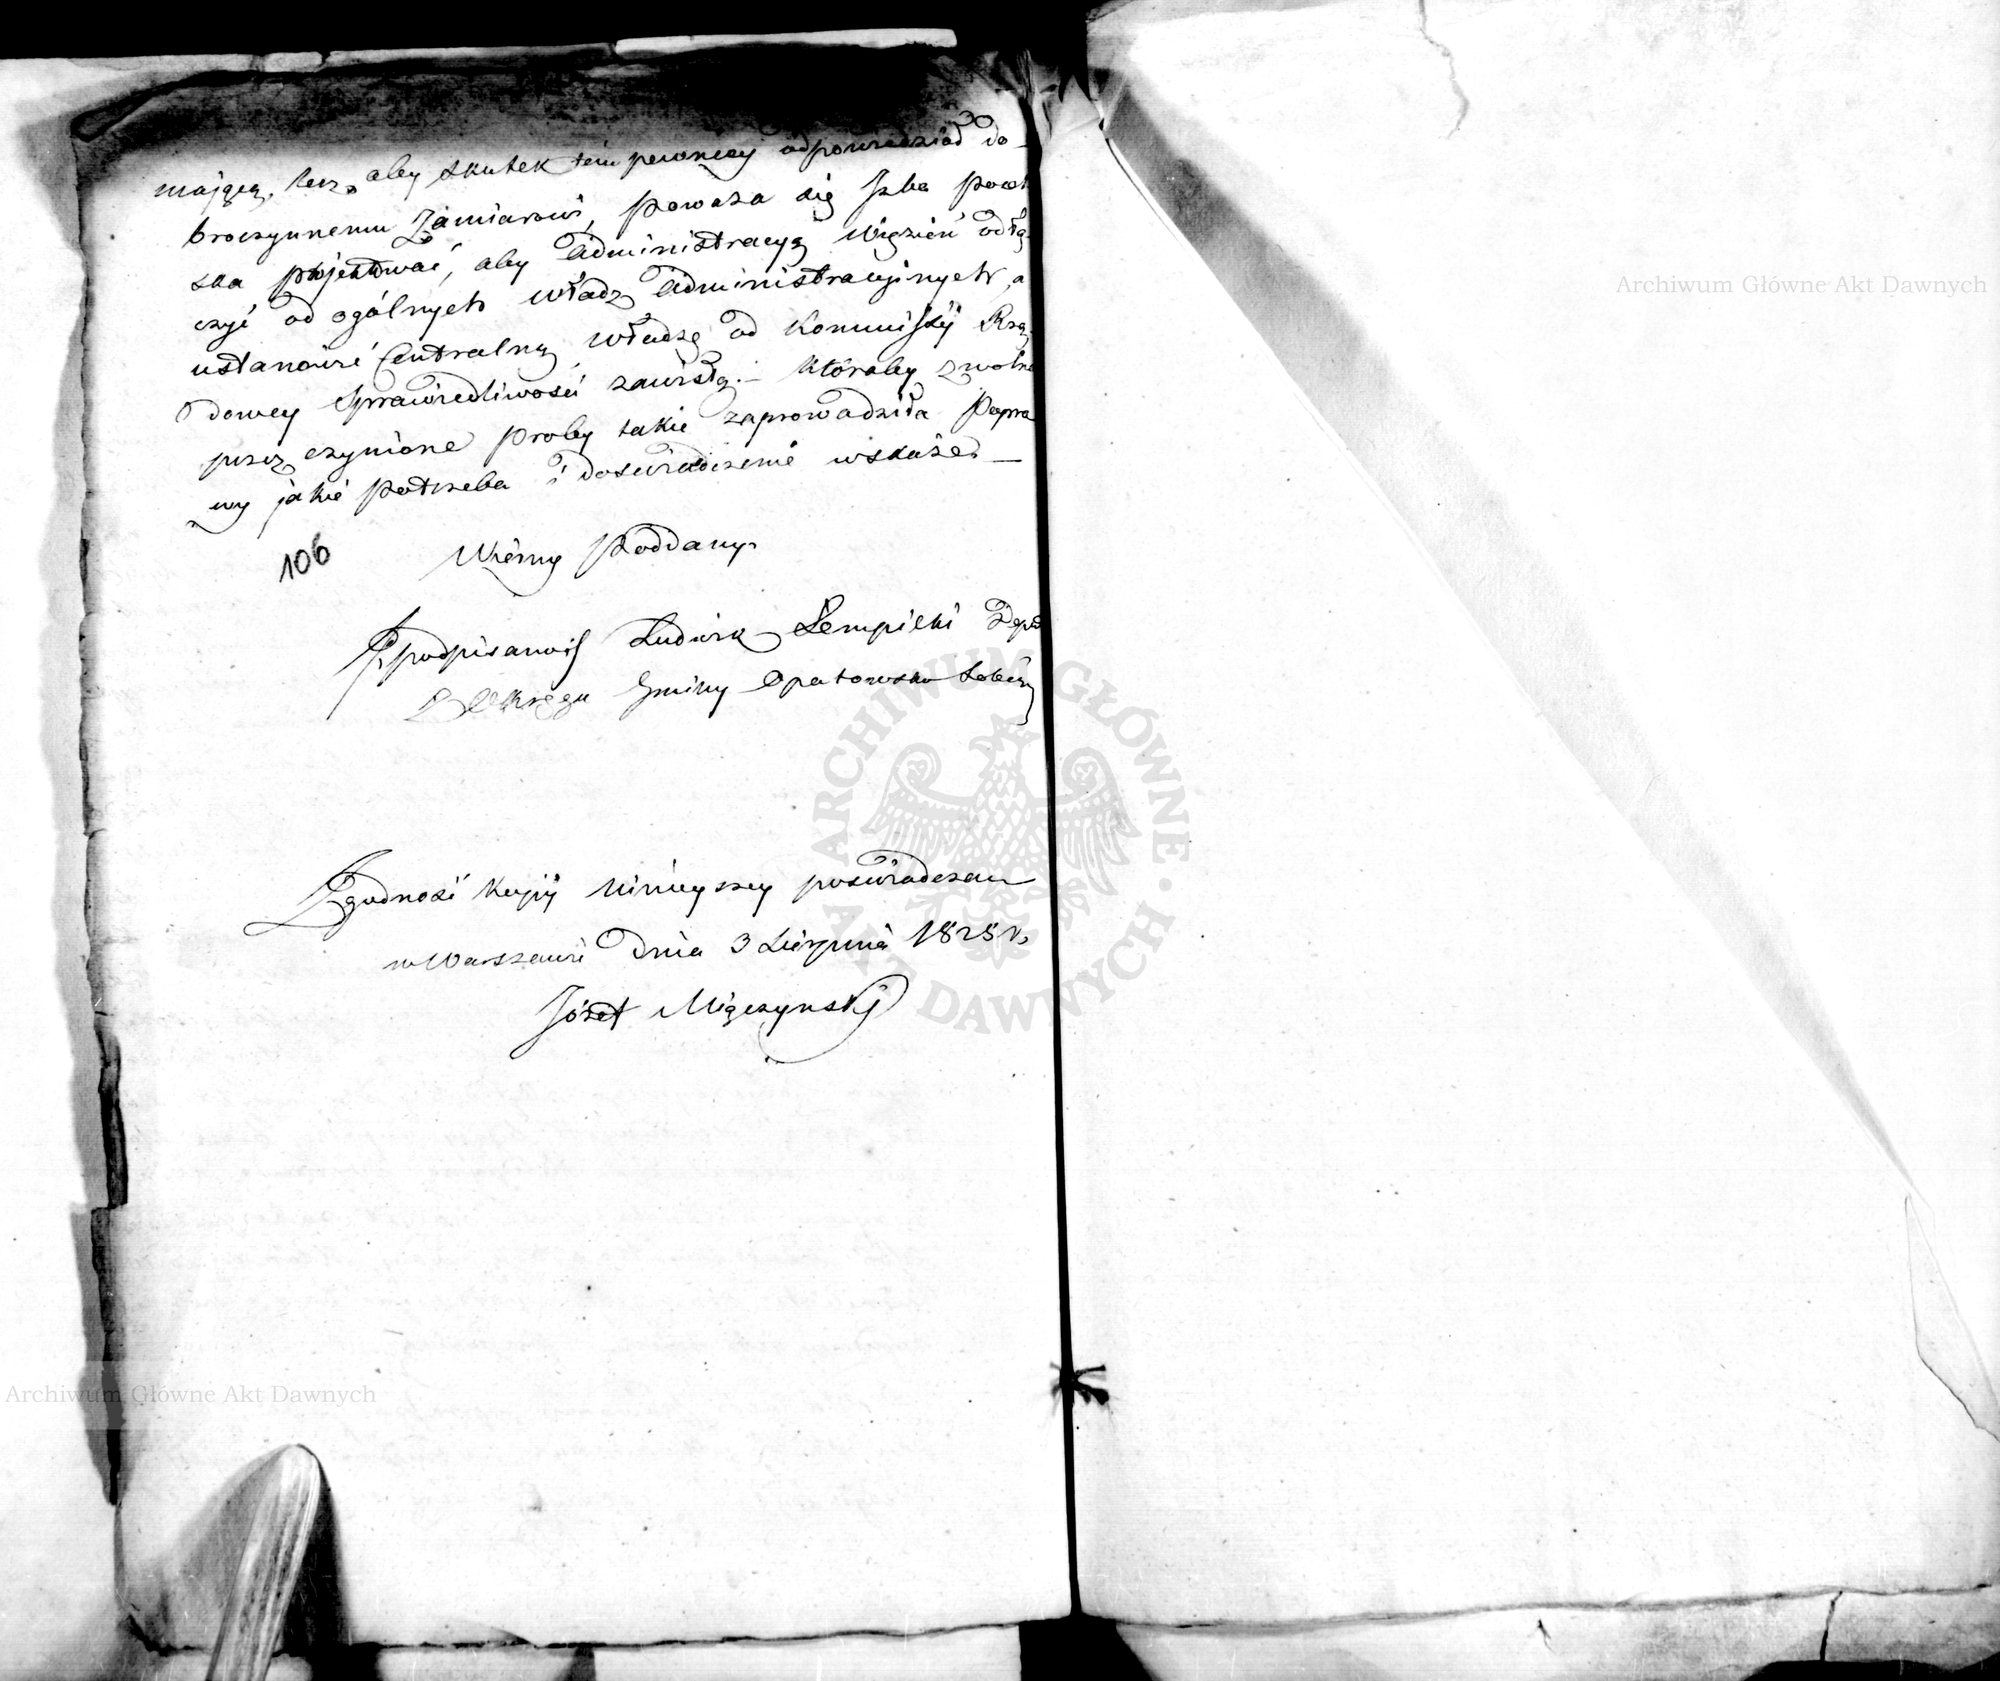 mającą, lecz aby skutek tem pewniey odpowiedział do-
broczynnemu Zamiarowi, poważa się Izba Posel
ska projektować, aby Administracyą Więzień odłą-
czyć od ogólnych Władz Administracyjnych, a
ustanowić Centralną Władzę od Kommissyi Rzą-
dowey Sprawiedliwości zawisłą. — Któraby zwolna
przez czynione proby takie zaprowadziła Popra
wy jakie potrzeba i doświadczenie wskaże. —
106
Wierny Poddany
podpisano Ludwik Łempicki Dep
Z Okręgu Gminy Opatowsko
Zgodność kopij ninieyszey poświadczam
w Warszawie Dnia 3 Sierpnia 1828 r.
Józef Mięczynski
Archiwum Główne Akt Dawnych
Archiwum Główne Akt Dawnych
ARCHIWUM GŁÓWNE AKT DAWNYCH